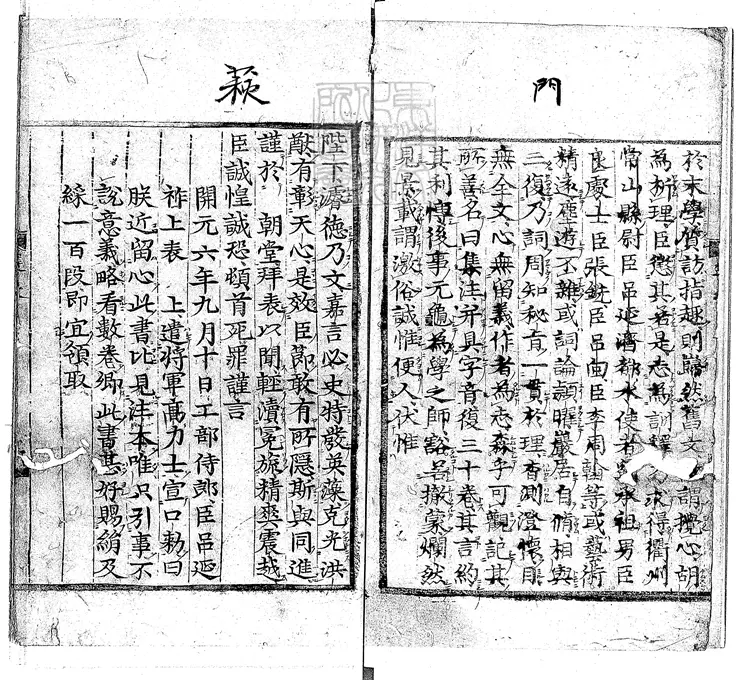 門
於末學質訪指趣則巋然舊文
謂攪心胡
為析理臣懲其若是志為訓釋乃求得衢州
常山縣尉臣呂延濟都水使者
承祖男臣
良處士臣張銑臣呂向臣李周翰等或藝術
精遠塵遊不雜或詞論穎曜巖居自脩相與
三復乃詞周知秘旨一貫於理杳測澄懷目
無全文心無留義作者為志森乎可觀記其
所善名曰集注并具字音復三十卷其言約
其利博後事元龜為學之師豁若撤蒙爛然
見景載謂激俗誠惟便人伏惟
蒺
陛下濬德乃文嘉言必史特發英藻克光洪
猷有彰天心是效臣節敢有所隱斯與同進
謹於 朝堂拜表以聞輕瀆冕旒精爽震越
臣誠惶誠恐頓首死罪謹言
開元六年九月十日工部侍郎臣呂延
祚上表 上遣將軍高力士宣口勅曰
朕近留心此書比見注本唯只引事不
說意義略看數卷卿此書甚好賜絹及
綵一百段即宜領取